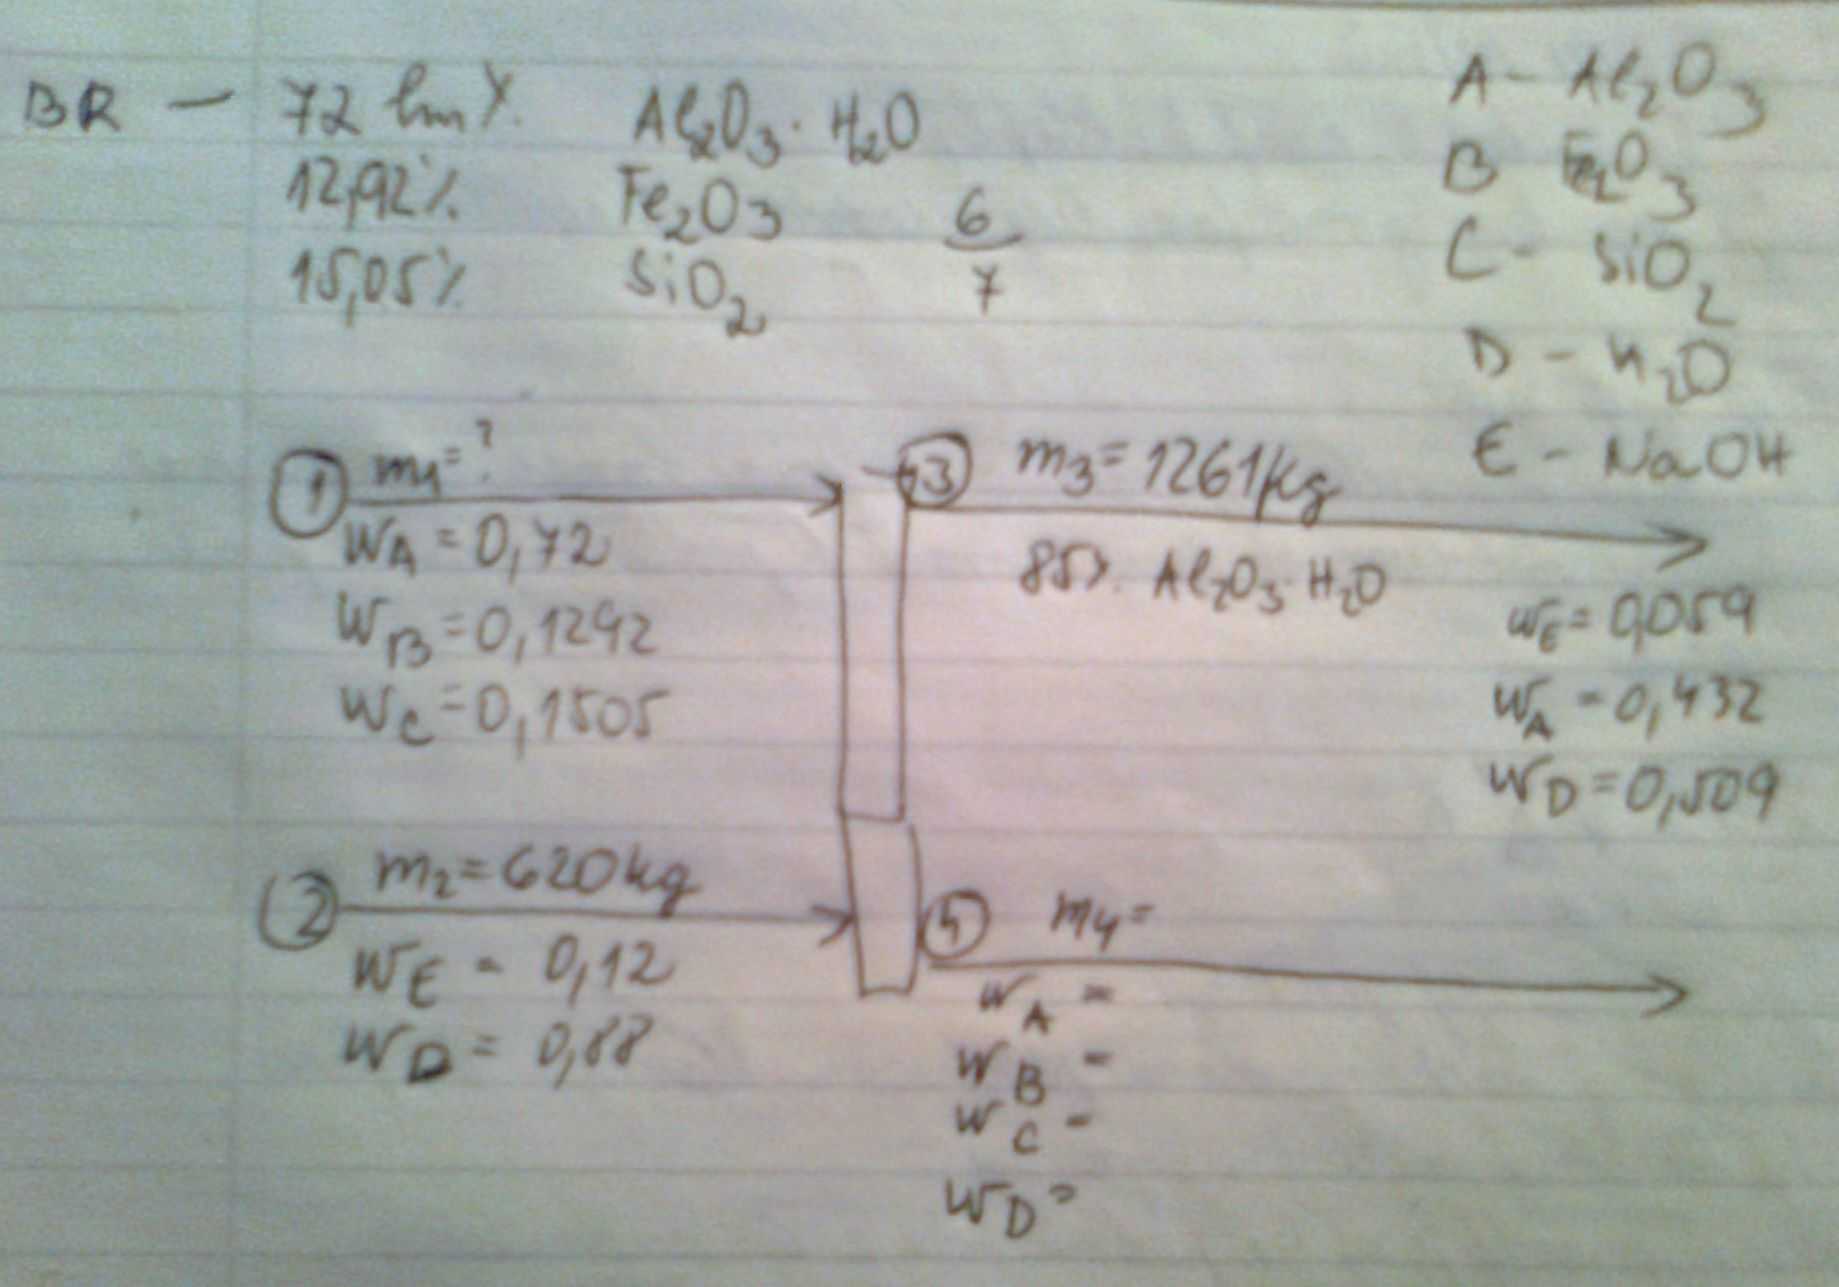 BR - 72 hm %. Al2O3 · H2O
12,92% Fe2O3
15,05% SiO2
6
7
A - Al2O3
B Fe2O3
C - SiO2
D - H2O
E - NaOH
1 m1 = ?
wA = 0,72
wB = 0,1292
wC = 0,1505
3 m3 = 1261 kg
85%. Al2O3·H2O
wE = 0,059
wA = 0,432
wD = 0,509
2 m2 = 620 kg
wE = 0,12
wD = 0,88
4 m4 =
wA =
wB =
wC =
wD =